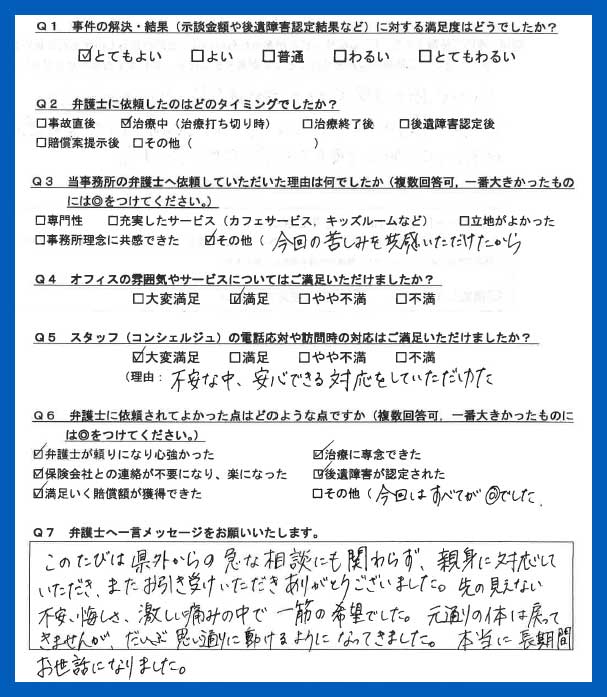 Q1 事件の解決・結果（示談金額や後遺障害認定結果など）に対する満足度はどうでしたか？
☑とてもよい □よい □普通 □わるい □とてもわるい
Q2 弁護士に依頼したのはどのタイミングでしたか？
□事故直後 ☑治療中（治療打ち切り時） □治療終了後 □後遺障害認定後
□賠償案提示後 □その他（ ）
Q3 当事務所の弁護士へ依頼していただいた理由は何でしたか（複数回答可，一番大きかったもの
には◎をつけてください。）
□専門性 □充実したサービス（カフェサービス，キッズルームなど） □立地がよかった
□事務所理念に共感できた ☑その他（ 今回の苦しみを共感いただけたから
Q4 オフィスの雰囲気やサービスについてはご満足いただけましたか？
□大変満足 ☑満足 □やや不満 □不満
Q5 スタッフ（コンシェルジュ）の電話応対や訪問時の対応はご満足いただけましたか？
☑大変満足 □満足 □やや不満 □不満
（理由： 不安な中、安心できる対応をしていただけた
Q6 弁護士に依頼されてよかった点はどのような点ですか（複数回答可，一番大きかったものに
は◎をつけてください。）
☑弁護士が頼りになり心強かった ☑治療に専念できた
☑保険会社との連絡が不要になり、楽になった ☑後遺障害が認定された
☑満足いく賠償額が獲得できた □その他（今回はすべてが◎でした．
Q7 弁護士へ一言メッセージをお願いいたします。
このたびは県外からの急な相談にも関わらず、親身に対応して
いただき、またお引き受けいただきありがとうございました。先の見えない
不安、悔しさ、激しい痛みの中で一筋の希望でした。元通りの体は戻って
きませんが、だいぶ思い通りに動けるようになってきました。本当に長期間
お世話になりました。